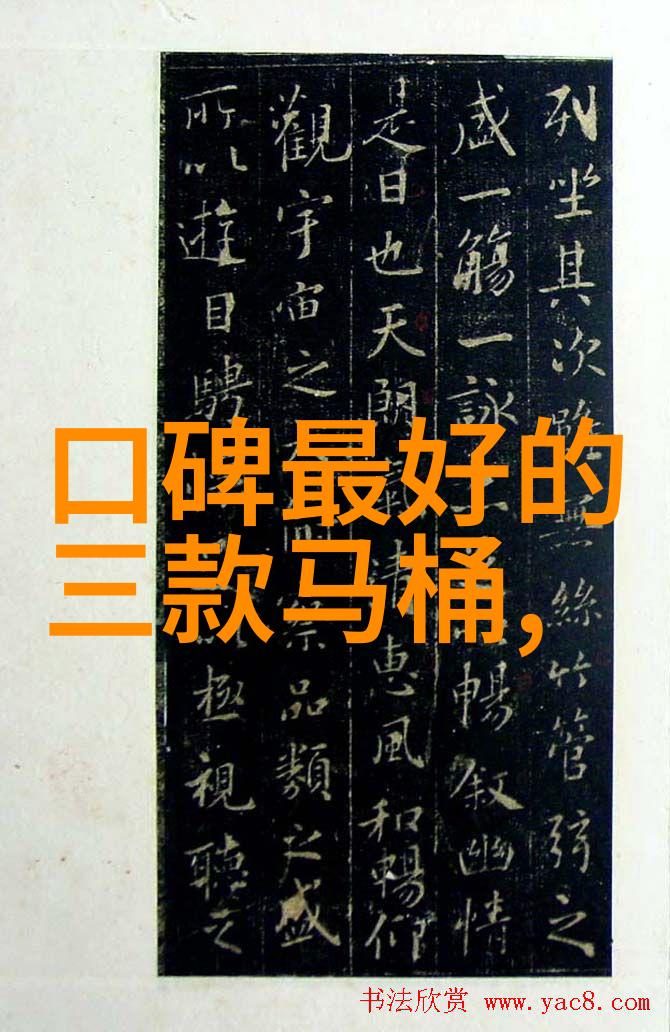 列坐其次雖無絲竹管弦之
盛一觴一詠暢叙幽情
是日也天朗氣清惠風和暢仰
觀宇宙之察品類之盛
所以遊目騁極視聽之
口碑最好的
三款马桶,
书法欣赏 www.yac8.com